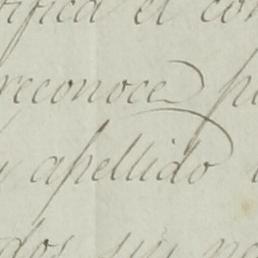 tifica el con
reconoce p
y apellido
dos sin